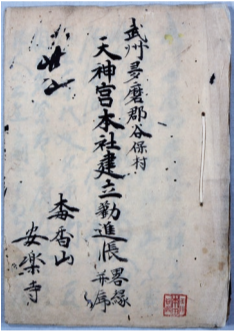 武州多磨郡谷保村
天神宮本社建立勸進帳
畧縁
并序
梅香山
安樂寺